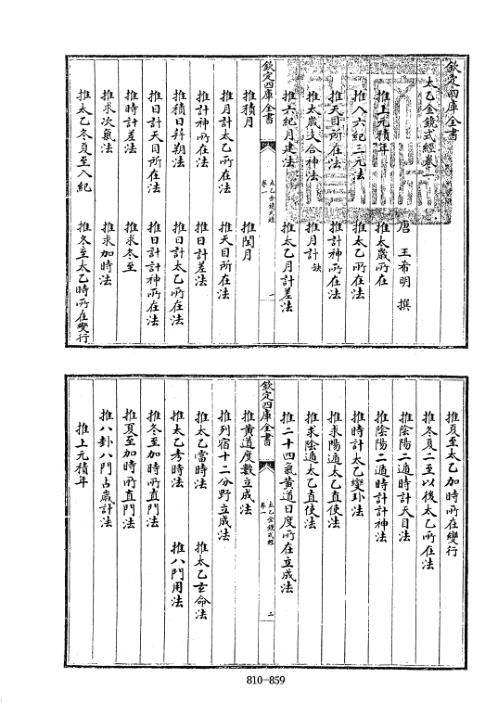 欽定四庫全書
太乙金鏡式經卷一
唐 王希明 撰
推上元積年 推太歲所在
推入六紀三元法 推太乙所在法
推天目所在法 推計神所在法
推太歲交合神法 推月計 缺
推六紀月建法 推太乙月計差法
欽定四庫全書 太乙金鏡式經 卷一 一
推積月 推閏月
推月計太乙所在法 推天目所在法
推計神所在法 推日計差法
推積日幷朔法 推日計太乙所在法
推日計天目所在法 推日計計神所在法
推時計差法 推求冬至
推求次氣法 推求加時法
推太乙冬夏至入紀 推冬至太乙時所在變行
推夏至太乙加時所在變行
推冬夏二至以後太乙所在法
推陰陽二遁時計天目法
推陰陽二遁時計計神法
推時計太乙變卦法
推求陽遁太乙直使法
推求陰遁太乙直使法
推二十四氣黃道日度所在立成法
欽定四庫全書 太乙金鏡式經 卷一 二
推黃道度數立成法
推列宿十二分野立成法
推太乙當時法 推太乙主命法
推太乙考時法 推八門用法
推冬至加時所直門法
推夏至加時所直門法
推八卦八門占歲計法
推上元積年
810-859